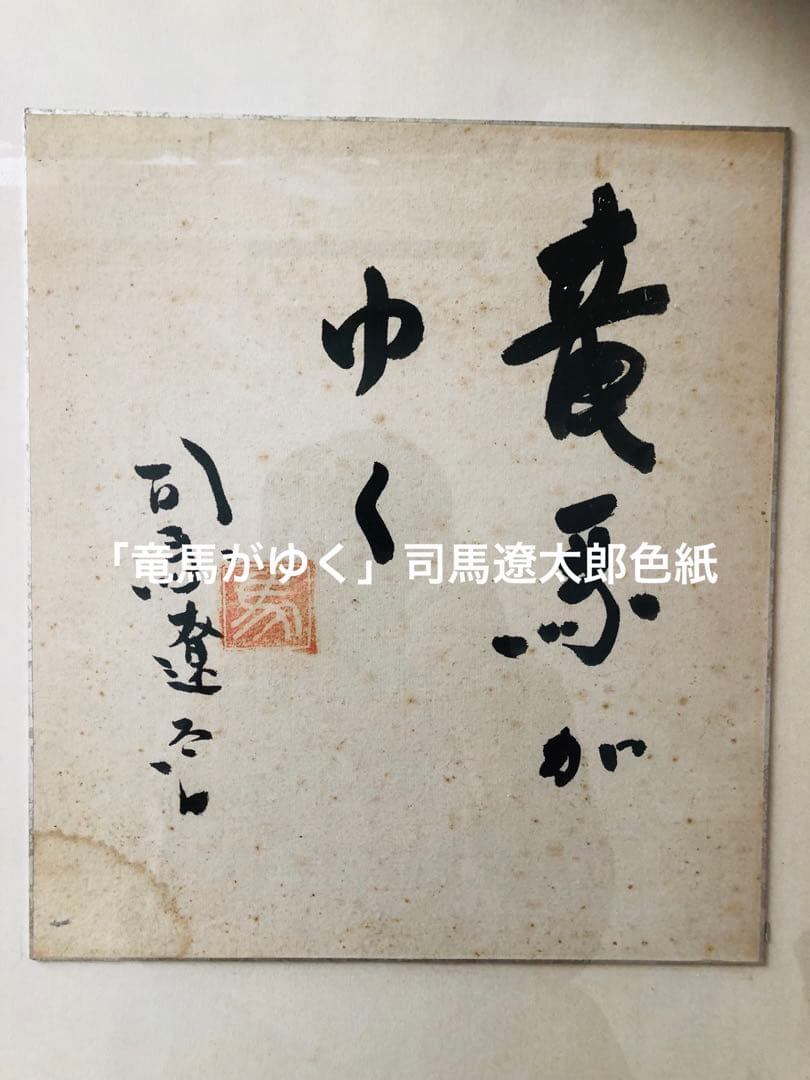 竜馬が
ゆく
司馬遼太郎
「竜馬がゆく」司馬遼太郎色紙